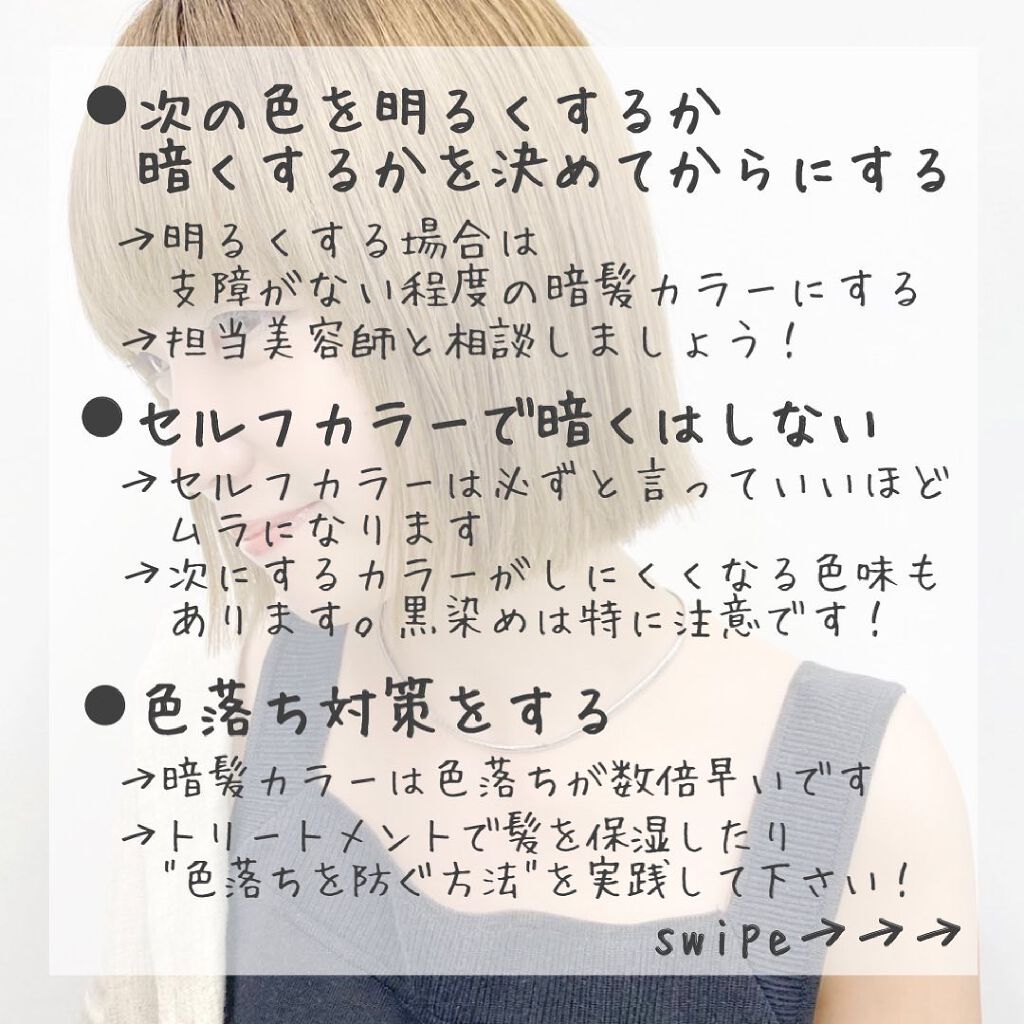 ●次の色を明るくするか
暗くするかを決めてからにする
→明るくする場合は
支障がない程度の暗髪カラーにする
→担当美容師と相談しましょう！
●セルフカラーで暗くはしない
→セルフカラーは必ずと言っていいほど
ムラになります
→次にするカラーがしにくくなる色味も
あります。黒染めは特に注意です！
●色落ち対策をする
→暗髪カラーは色落ちが数倍早いです
→トリートメントで髪を保湿したり
"色落ちを防ぐ方法"を実践して下さい！
swipe→→→